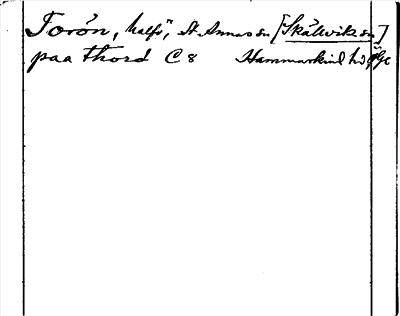 Torön, halfö, St Annas sn [Skällviks sn]
paa thord C 8 Hammarkind hd Ög